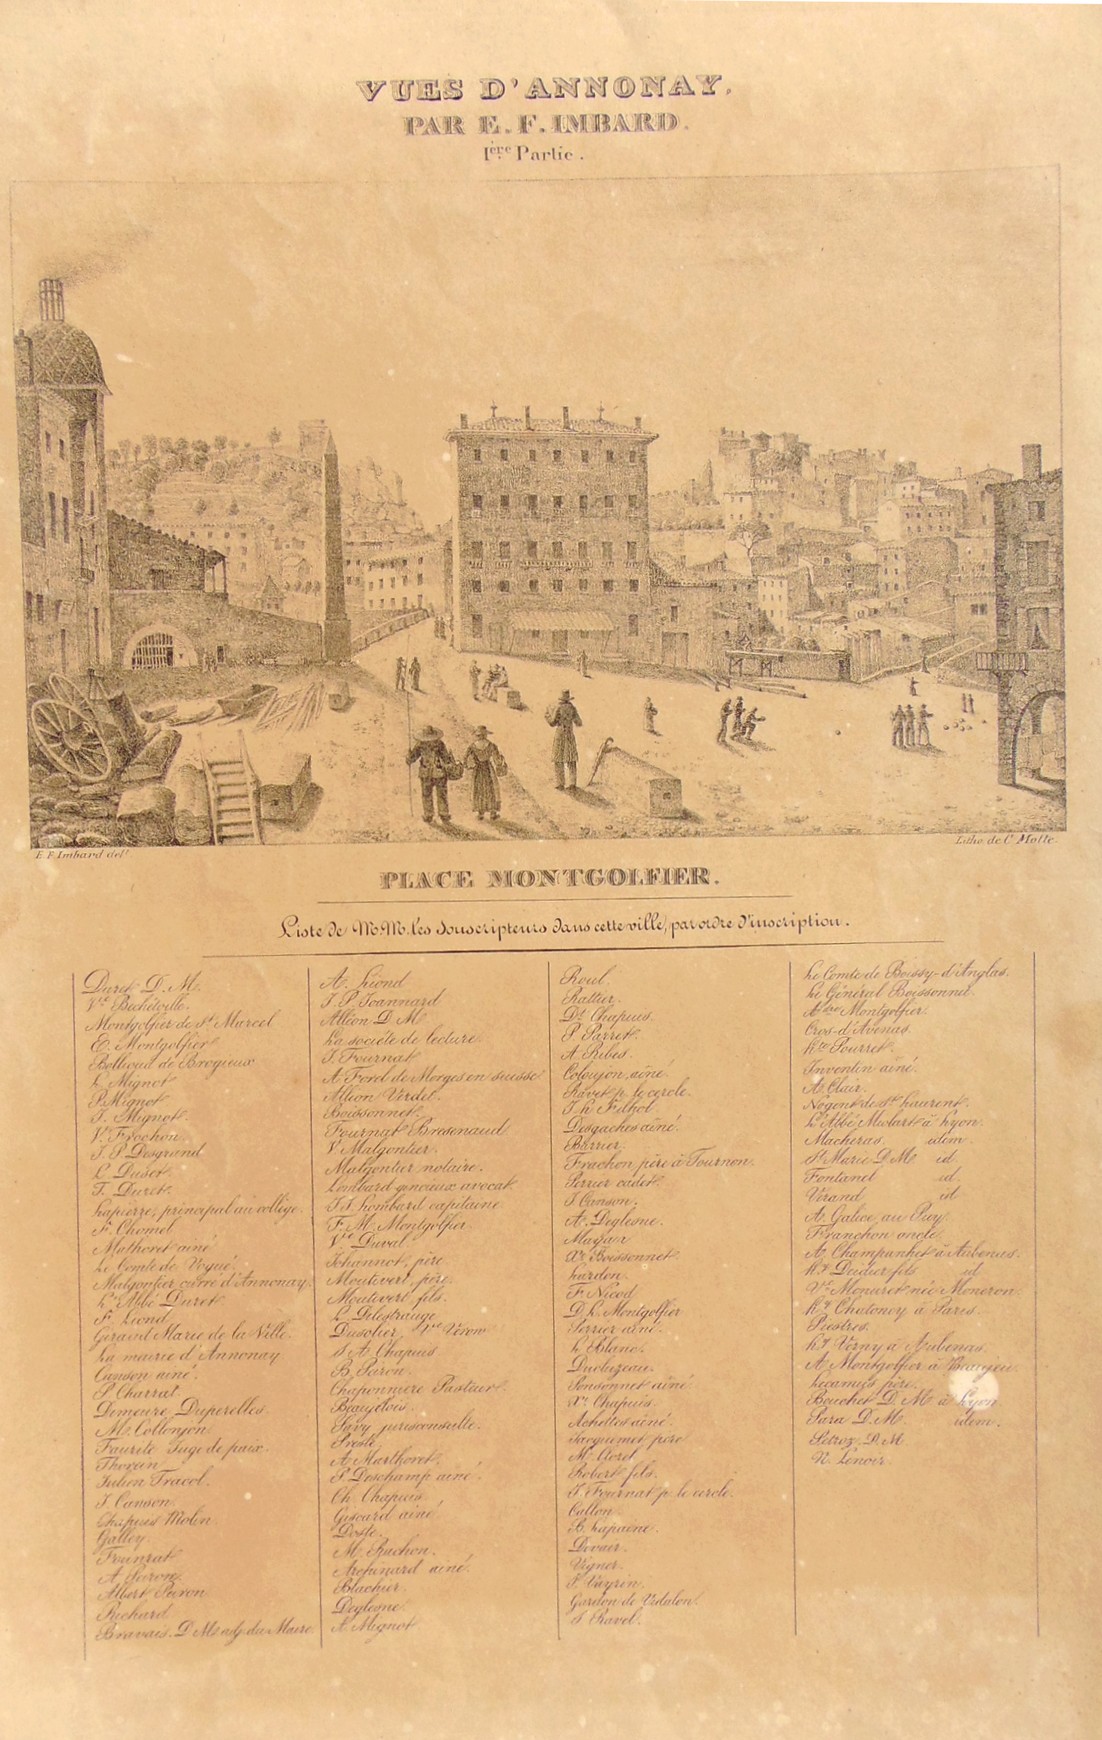 VUES D'ANNONAY.
PAR E. F. IMBARD.
1ère Partie.
E. F. Imbard delt
Litho. de C. Motte.
PLACE MONTGOLFIER.
Liste de M.M. les Souscripteurs dans cette ville, par ordre d'inscription.
Duret D. M.
Ve Bechetoille.
Montgolfier de St Marcel
E. Montgolfier
Bollioud de Brogieux
L. Mignot
P. Mignot
J. Mignot
Ve Frachon
J. P. Desgrand
L. Duret
F. Duret
Lapierre, principal au collège.
F. Chomel
Mathoret ainé
Le Comte de Vogué.
Malgontier curé d'Annonay.
L'Abbé Duret
F. Léond
Giraud Marie de la Ville.
La mairie d'Annonay
Canson ainé.
P. Charrat.
Demeure Duperelles
M. Collonjon
Faurete Juge de paix.
Julien Tracol.
J. Canson.
Chapuis Molin
Galley.
A. Peiron
Albert Peiron
Richard
Bravais. D. M. adj. du Maire.
A. Léond
J. P. Joannard
Allion D. M
La societé de lecture.
J. Fournat
A. Forel de Morges en suisse
Allion Verdet.
Boissonnet.
Fournat Bresenaud
V. Malgontier.
Malgontier notaire.
Lombard gencieux avocat
J. J. Lombard capitaine
F. M. Montgolfier
Ve Duval
Johannot, père
Montevert, père.
Montevert fils.
L. Delestrange
Dusolier
A. Chapuis
B. Peron.
Chaponniere Pasteur.
Beaujolois.
Savy jurisconsulte.
Presle
A. Marthoret.
P. Deschamp ainé.
Ch. Chapuis
Giscard ainé
M. Rachon.
Blachier.
Deglesne.
A. Mignot
Roul.
Rattier.
Dt Chapuis.
P. Parret.
A. Ribes.
Colonjon, ainé.
Ravet p. le cercle.
J. h Filhol
Desgaches ainé.
Barrier.
Frachon père à Tournon.
Perrier cadet
J. Canson.
A. Deglesne.
Mayan
Xr Boissonnet
Lardon.
F. Nicod
D. L. Montgolfier
Perrier ainé.
L. Blanc.
Ducluzeau.
Sonsonnet ainé
Xr Chapuis.
Achettes ainé.
Jacquemet père
Mt Clozel
Robert fils.
J. Fournat p. le cercle.
Callon
Devair
Vigner.
P. Vayrin.
Gardon de Vidalon.
J. Ravel.
Le Comte de Boissy-d'Anglas.
Le Général Boissonnet.
Montgolfier.
Cros-d'Avenas.
Pourret.
Inventin ainé.
A. Clair.
Nogent de St Laurent.
L'Abbé Miolart à Lyon.
Macheras. idem.
St Marie D. M. id.
Fontanel id.
Verand id
A. Galice au Puy
Franchon oncle.
A. Champanhet à Aubenas.
Deidier fils id
Ve Monerct née Moneron.
Hy Chalamey à Paris.
Piestres.
Hy Verny à Aubenas.
A. Montgolfier à Beaujeu
Lecamus père.
Bouchet D. M. à Lyon
Para D. M. idem.
Setroz. D. M
N. Lenoir.